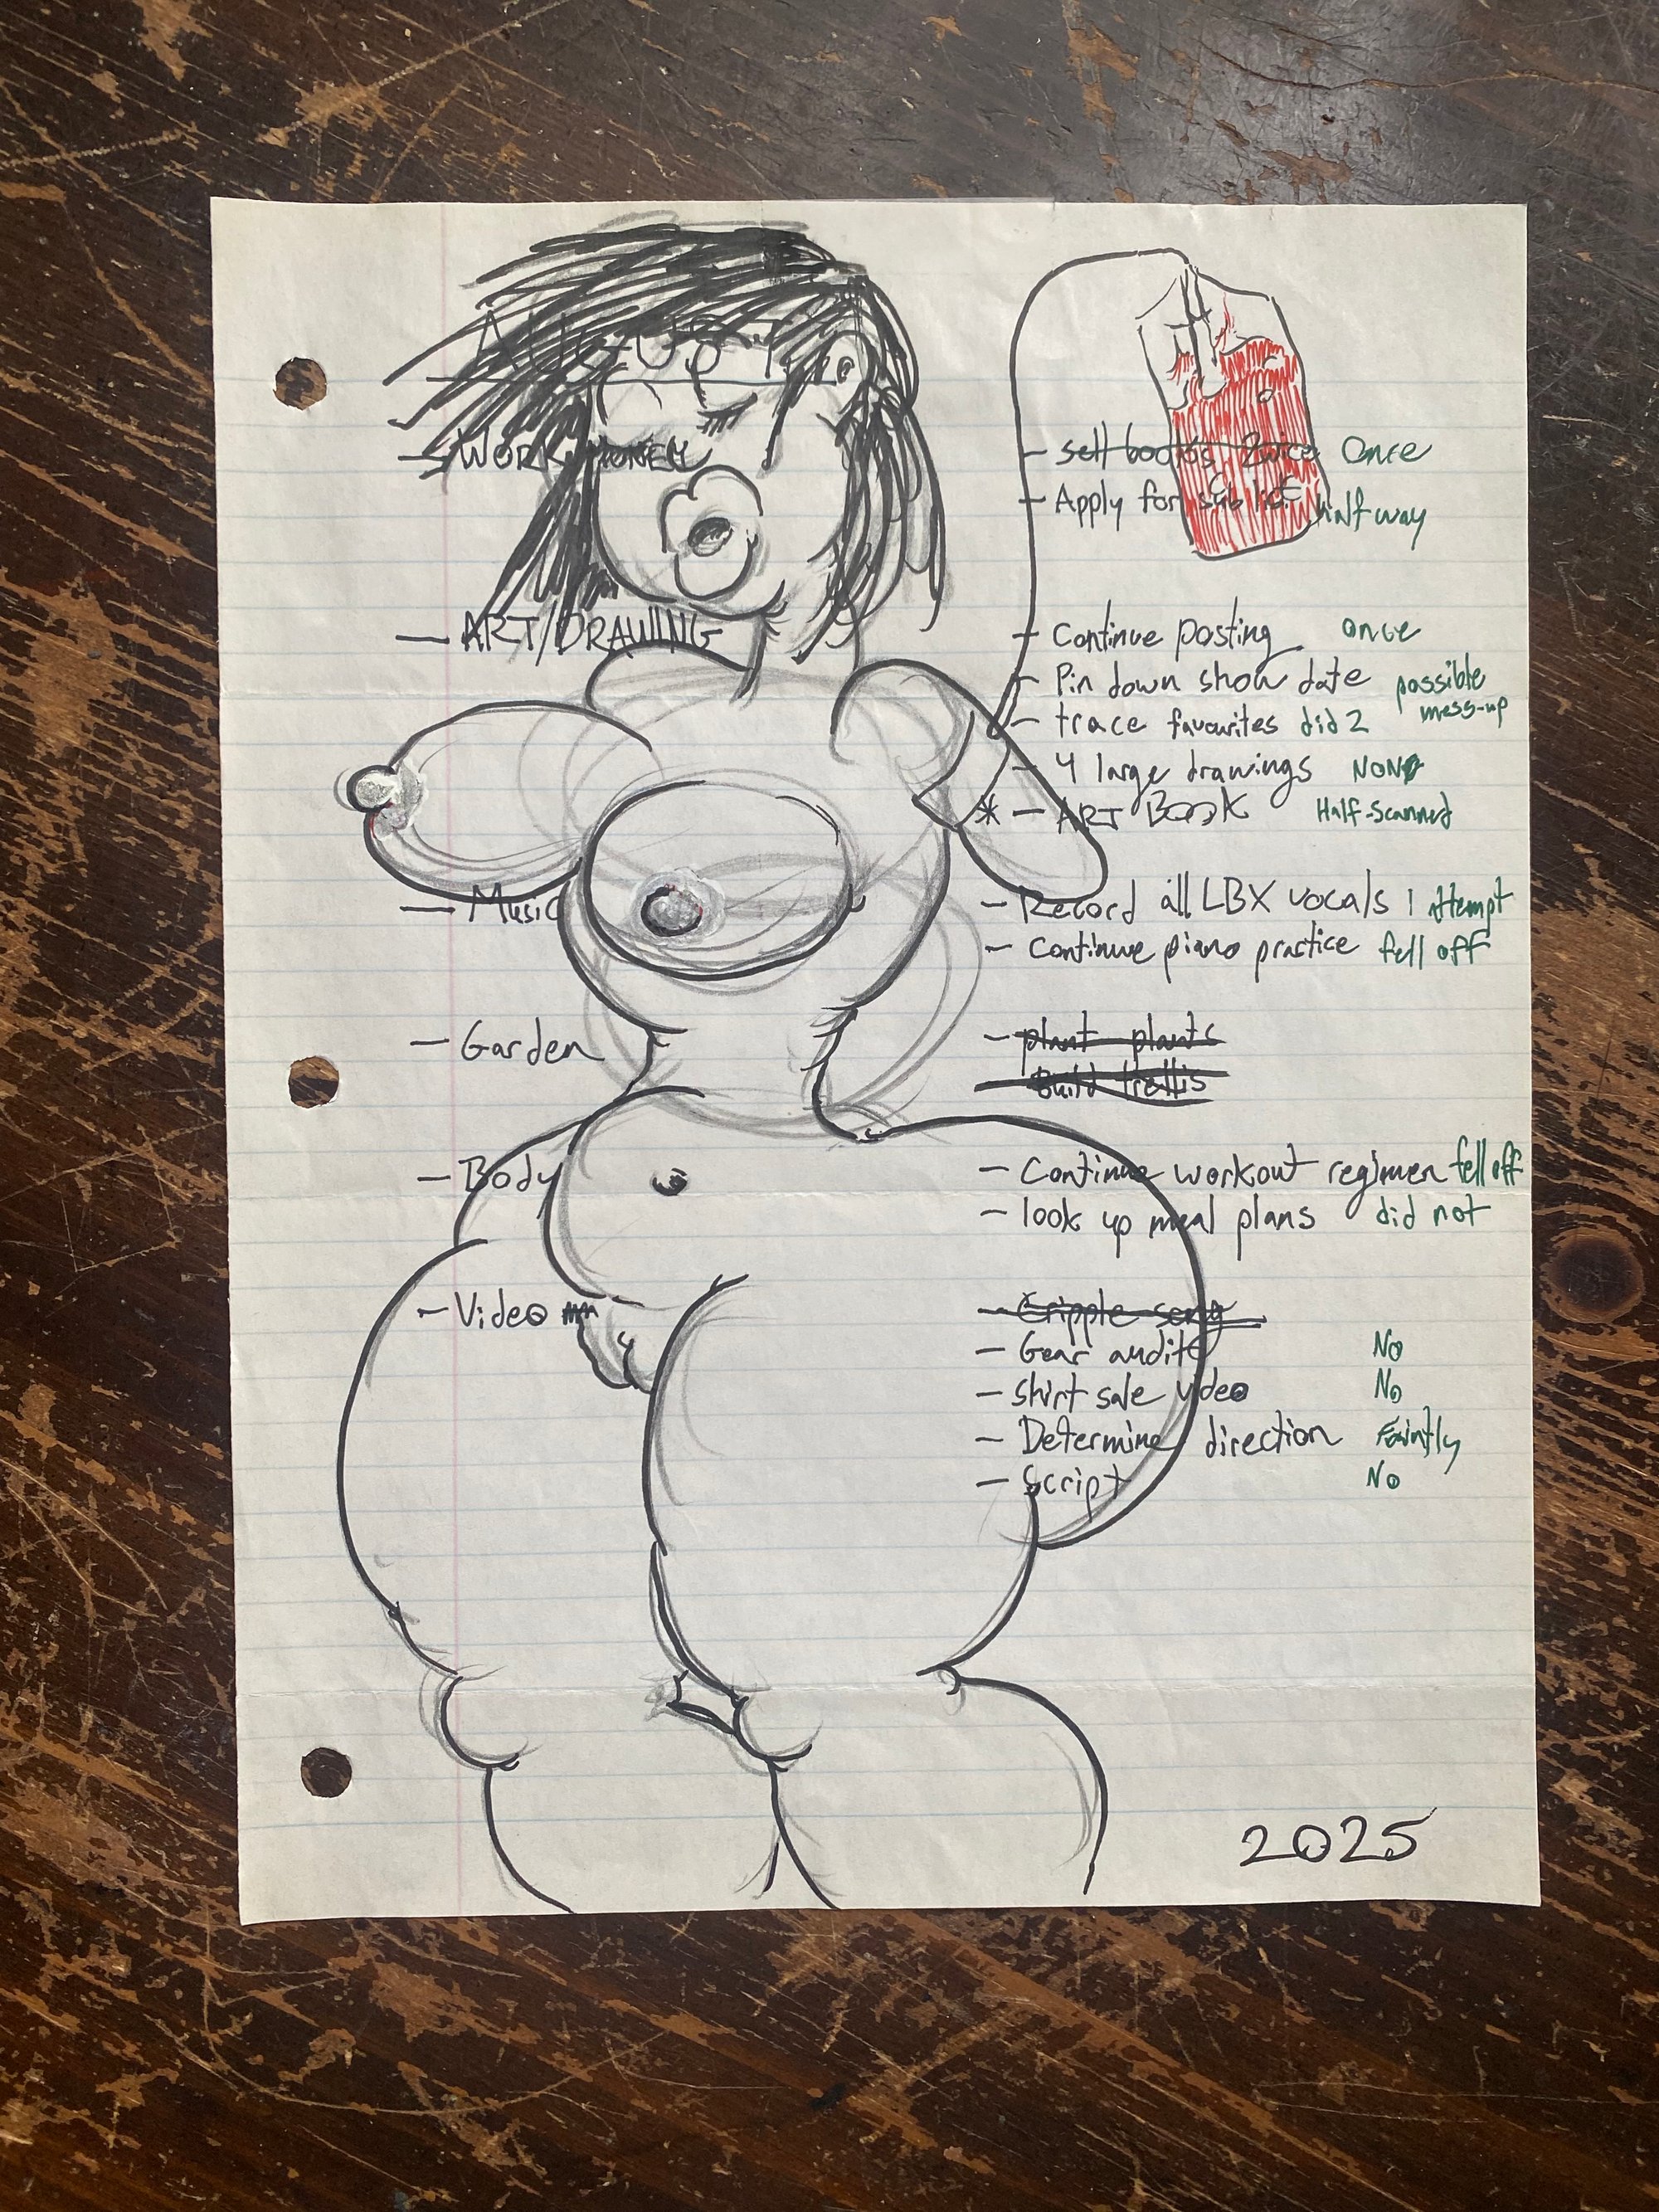 AUGUST
— WORK/MONEY — sell bookss twice Once
— Apply for sub list halfway
— ART/DRAWING — Continue posting once
— Pin down show date possible mess-up
— trace favourites did 2
— 4 large drawings NONE
* — ART BOOK Half-scanned
— Music — Record all LBX vocals 1 attempt
— Continue piano practice fell off
— Garden — plant plants
— Build trellis
— Body — Continue workout regimen fell off
— look up meal plans did not
— Video — Cripple song
— Gear audit No
— Shirt sale video No
— Determine direction Faintly
— Script No
2025